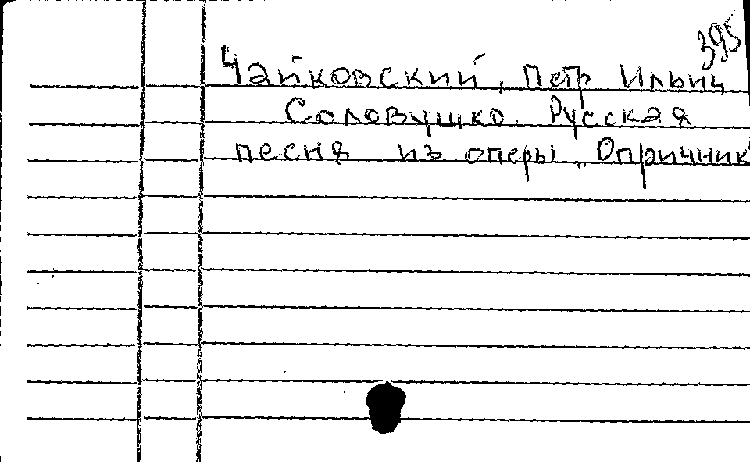 395
Чайковский, Петр Ильич
Соловушко. Русская
песня из оперы „Опричник"